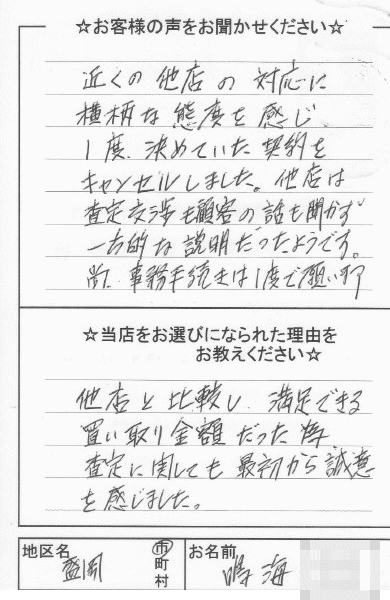 ☆お客様の声をお聞かせください☆
近くの他店の対応に
横柄な態度を感じ
1度、決めていた契約を
キャンセルしました。他店は
査定交渉も顧客の話も聞かず
一方的な説明だったようです。
尚、事務手続きは1度で願います
☆当店をお選びになられた理由を
お教えください☆
他店と比較し、満足できる
買い取り金額だった為、
査定に関しても最初から誠意
を感じました。
地区名 盛岡 市
町
村
お名前 鳴海